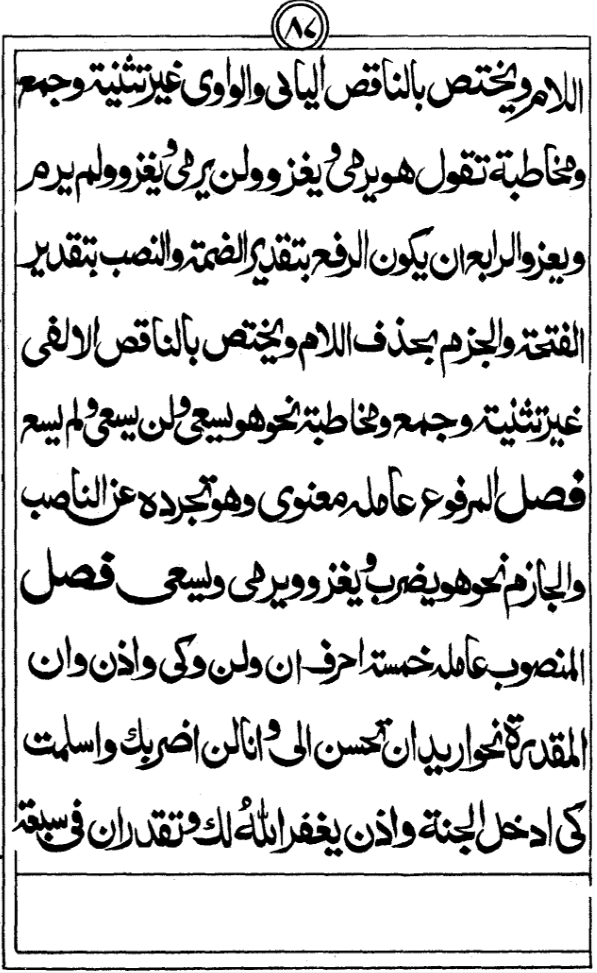 ٨٤
اللام ويختص بالناقص اليائى والواوى غير تثنية وجمع
ومخاطبة تقول هو يرمى ويغزو ولن يرمى ويغزو ولم يرم
ويغز والرابع ان يكون الرفع بتقدير الضمة والنصب بتقدير
الفتحة والجزم بحذف اللام ويختص بالناقص الالفى
غير تثنية وجمع ومخاطبة نحو هو يسعى ولن يسعى ولم يسع
فصل المرفوع عامله معنوى وهو تجرده عن الناصب
والجازم نحو هو يضرب ويغزو ويرمى ويسعى فصل
المنصوب عامله خمسة احرف ان ولن وكى واذن وان
المقدرة نحو اريد ان تحسن الى وانا لن اضربك واسلمت
كى ادخل الجنة واذن يغفر اللهُ لك وتقدر ان فى سبعة